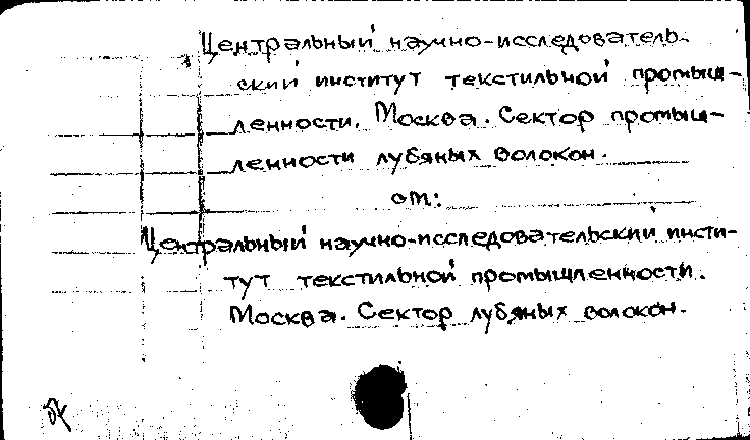 Центральный научно-исследователь-
ский институт текстильной промыш-
ленности. Москва. Сектор промыш-
ленности лубяных волокон.
от:
Центральный научно-исследовательский инсти-
тут текстильной промышленности.
Москва. Сектор лубяных волокон.